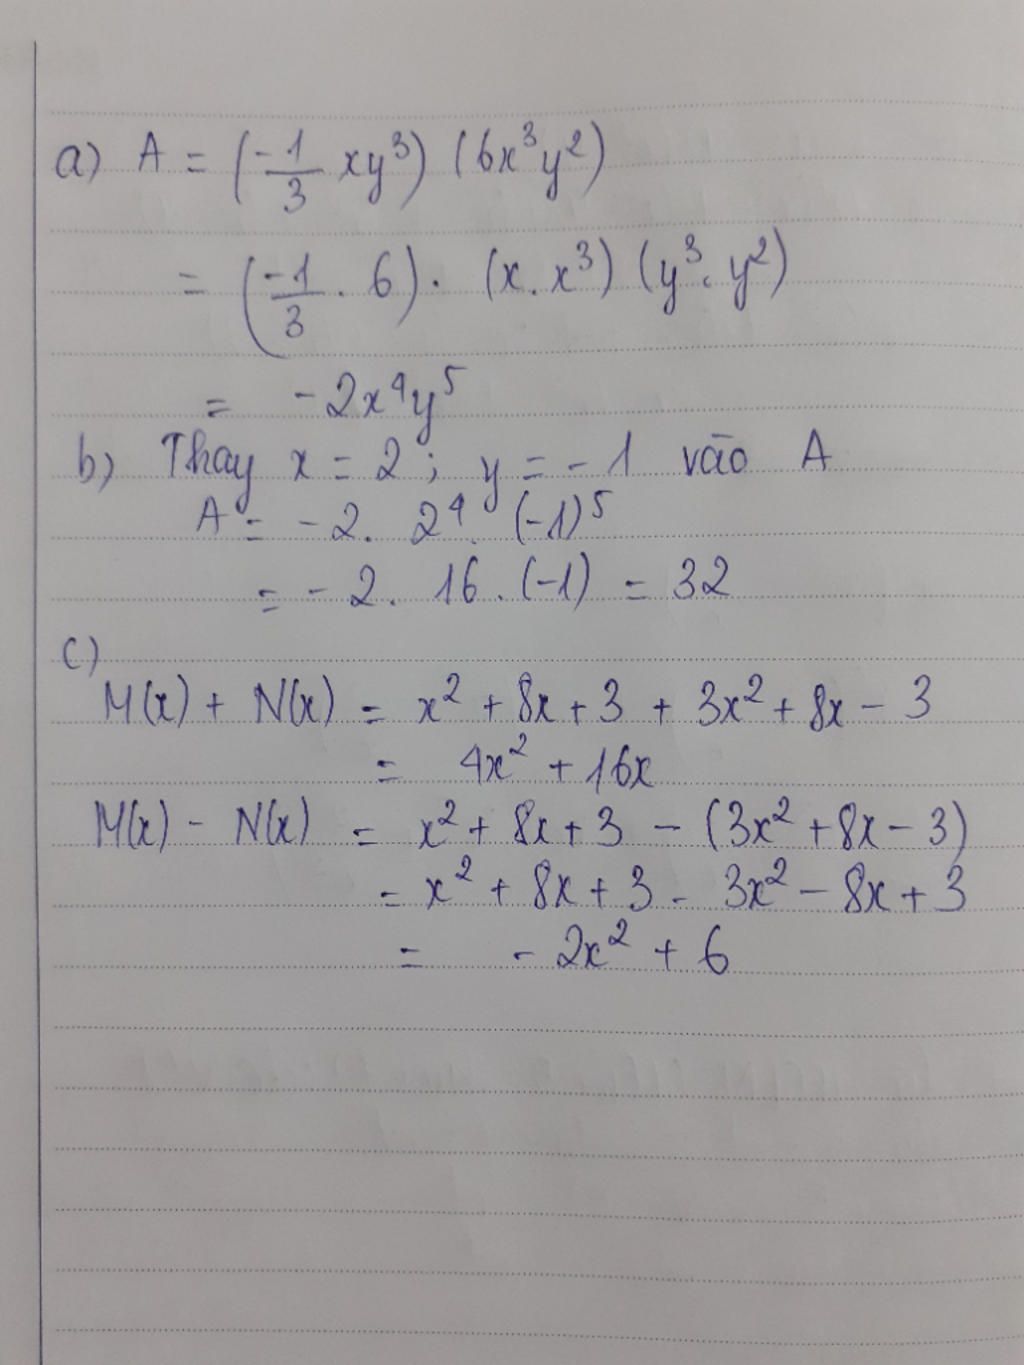 a) A = (-1/3 xy³) (6x³y²)
= (-1/3 . 6) . (x . x³) (y³ . y²)
= -2x⁴y⁵
b) Thay x = 2 ; y = -1 vào A
A = -2 . 2⁴ . (-1)⁵
= -2 . 16 . (-1) = 32
c)
M(x) + N(x) = x² + 8x + 3 + 3x² + 8x - 3
= 4x² + 16x
M(x) - N(x) = x² + 8x + 3 - (3x² + 8x - 3)
= x² + 8x + 3 - 3x² - 8x + 3
= -2x² + 6